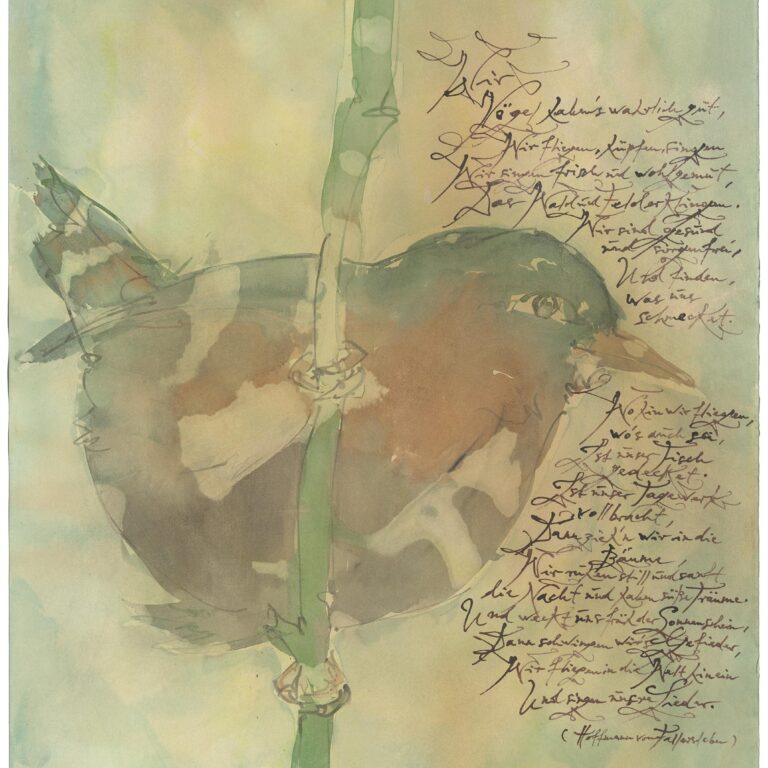 Wir
Vögel haben's wahrlich gut,
Wir fliegen, hüpfen, singen
Wir singen frisch und wohlgemut,
Das Wald und Feld erklingen.
Wir sind gesund
und sorgenfrei,
Und finden,
was uns
schmecket.
Wohin wir fliegen,
wo's auch sei,
Ist unser Tisch
gedecket.
Ist unser Tagewerk
vollbracht,
Dann zieh'n wir in die
Bäume,
Wir ruhen still und sanft
die Nacht und haben süße Träume.
Und weckt uns früh der Sonnenschein,
Dann schwingen wir's Gefieder,
Wir fliegen in die Welt hinein
Und singen unsre Lieder.
(Hoffmann von Fallersleben)